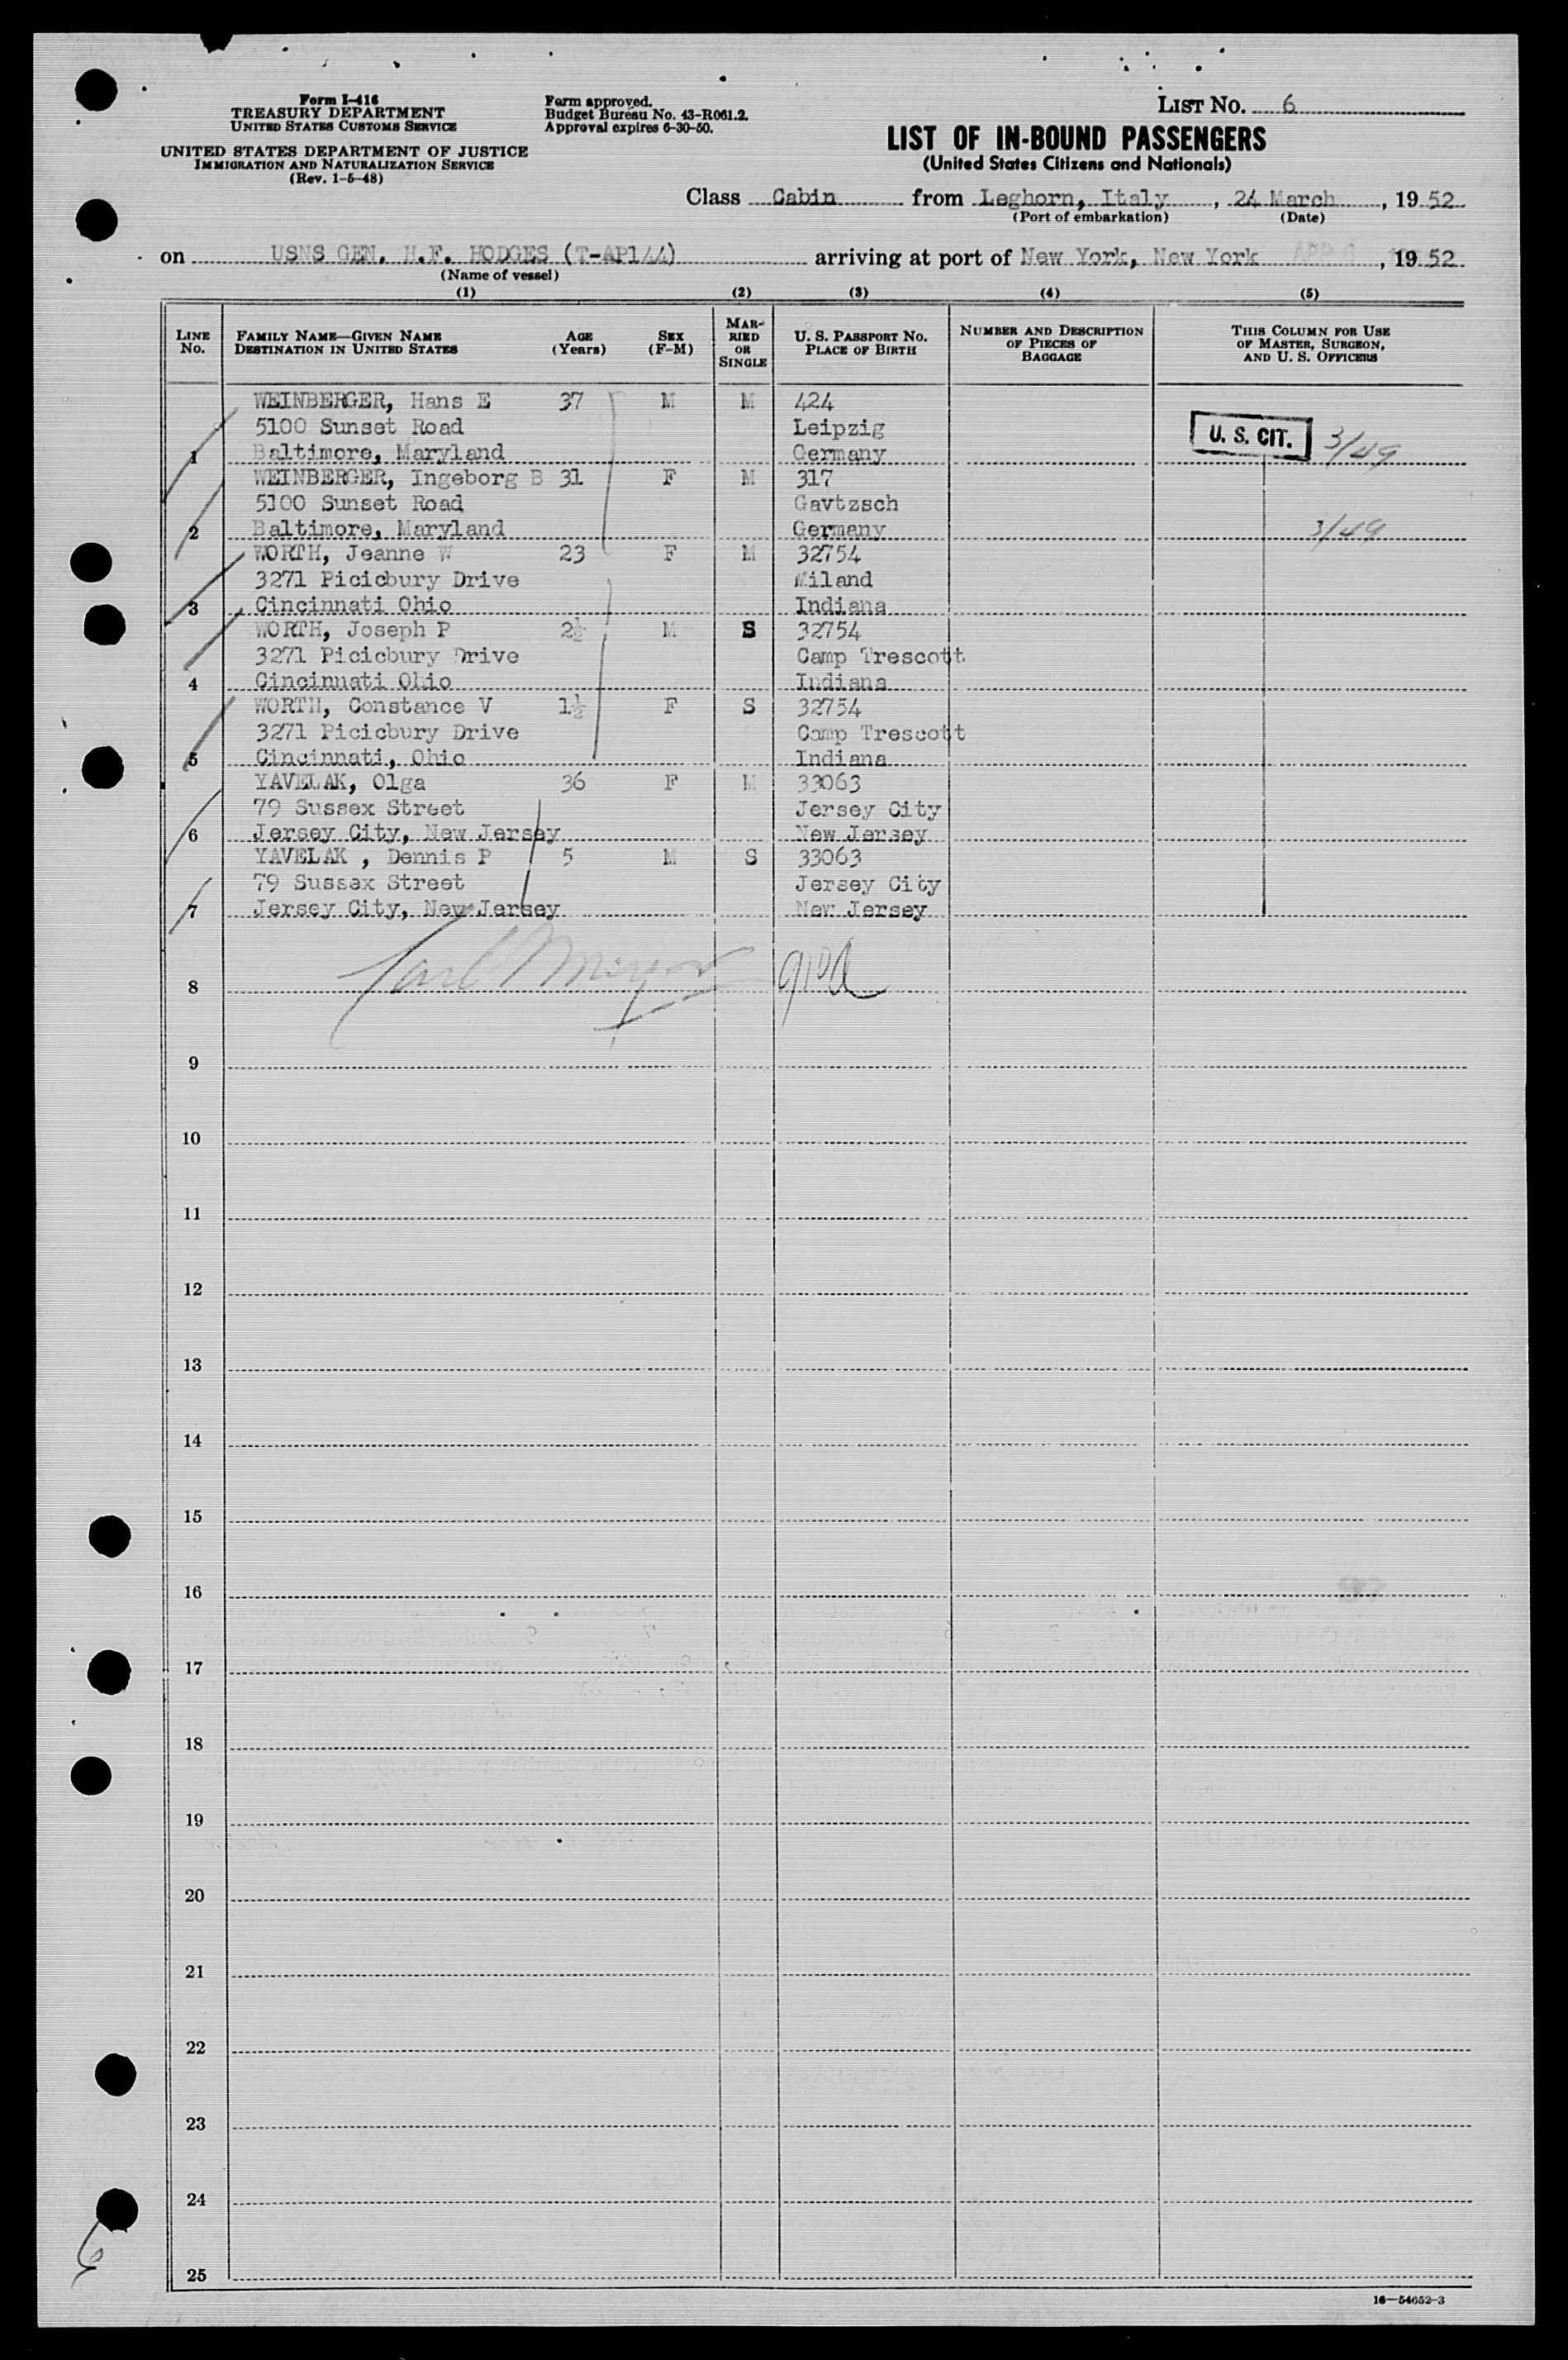 Form I-416
TREASURY DEPARTMENT
UNITED STATES CUSTOMS SERVICE
UNITED STATES DEPARTMENT OF JUSTICE
IMMIGRATION AND NATURALIZATION SERVICE
(Rev. 1-5-48)
Form approved.
Budget Bureau No. 43-R061.2.
Approval expires 6-30-50.
LIST NO. 6
LIST OF IN-BOUND PASSENGERS
(United States Citizens and Nationals)
Class Cabin from Leghorn, Italy, 24 March, 19 52
(Port of embarkation) (Date)
on USNS GEN. H.F. HODGES (T-AP144) arriving at port of New York, New York, 19 52
(Name of vessel)
(1) (2) (3) (4) (5)
LINE No. FAMILY NAME—GIVEN NAME DESTINATION IN UNITED STATES AGE (Years) SEX (F-M) MARRIED OR SINGLE U. S. PASSPORT NO. PLACE OF BIRTH NUMBER AND DESCRIPTION OF PIECES OF BAGGAGE THIS COLUMN FOR USE OF MASTER, SURGEON, AND U. S. OFFICERS
WEINBERGER, Hans E 37 M M 424
5100 Sunset Road Leipzig U. S. CIT. 3/49
1 Baltimore, Maryland Germany
WEINBERGER, Ingeborg B 31 F M 317
5100 Sunset Road Gavtzsch
2 Baltimore, Maryland Germany 3/49
WORTH, Jeanne W 23 F M 32754
3271 Picicbury Drive Miland
3 Cincinnati Ohio Indiana
WORTH, Joseph P 2½ M S 32754
3271 Picicbury Drive Camp Trescott
4 Cincinnati Ohio Indiana
WORTH, Constance V 1½ F S 32754
3271 Picicbury Drive Camp Trescott
5 Cincinnati, Ohio Indiana
YAVELAK, Olga 36 F M 33063
79 Sussex Street Jersey City
6 Jersey City, New Jersey New Jersey
YAVELAK , Dennis P 5 M S 33063
79 Sussex Street Jersey City
7 Jersey City, New Jersey New Jersey
8
9
10
11
12
13
14
15
16
17
18
19
20
21
22
23
24
25
6
16—54652-3